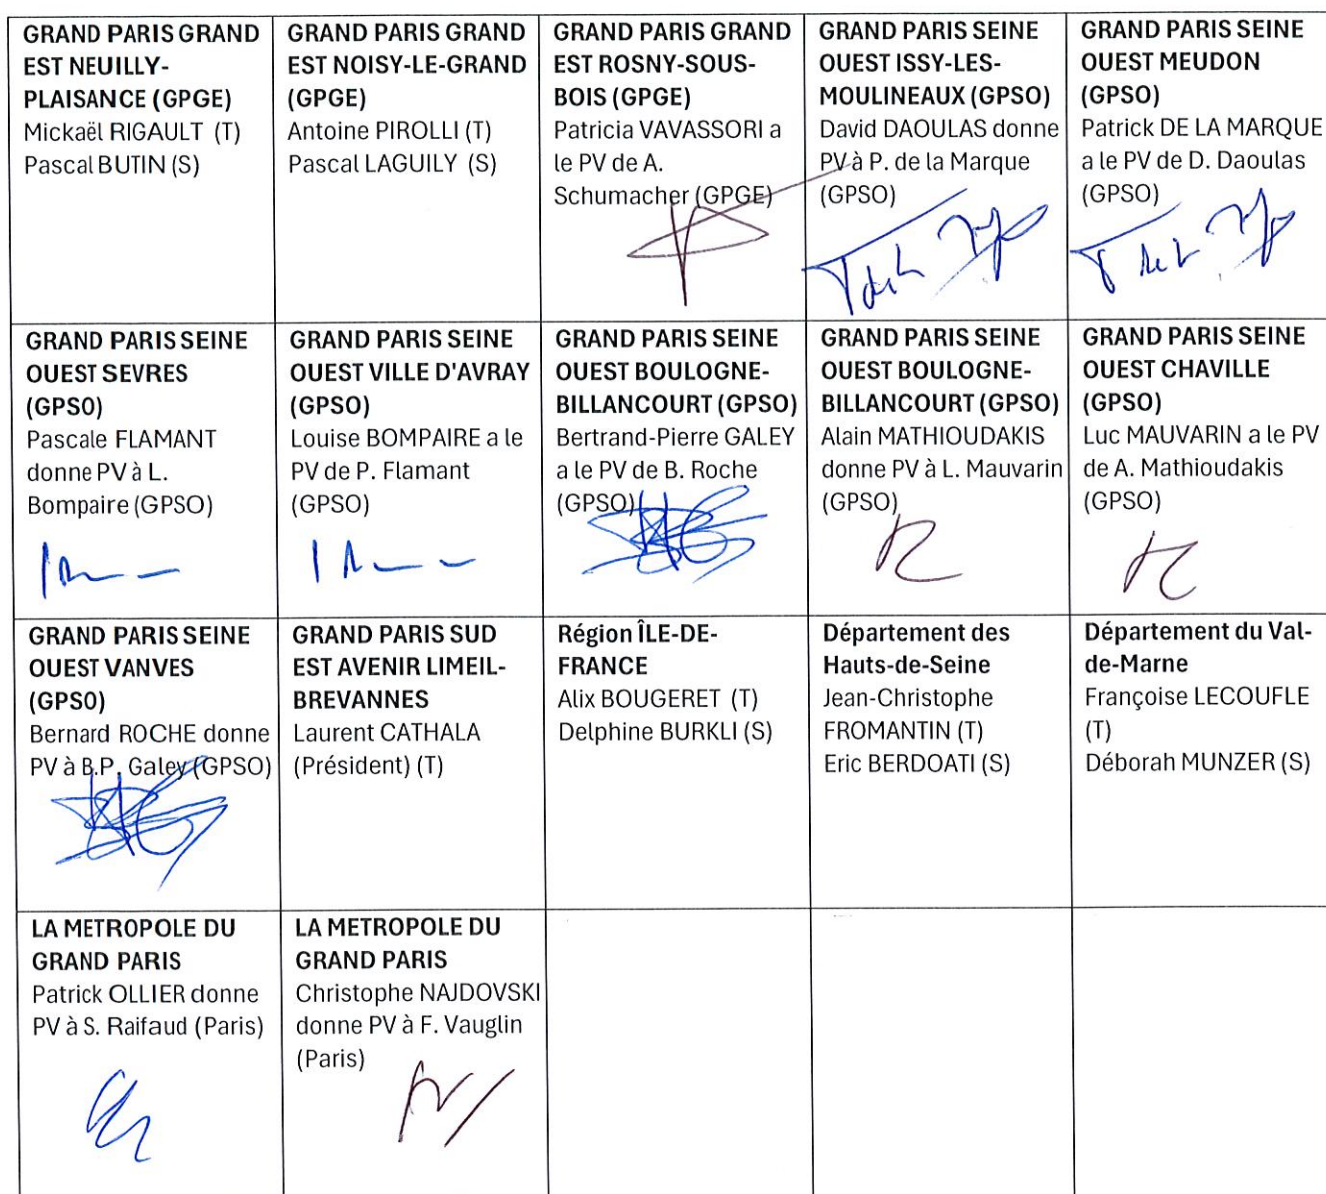 GRAND PARIS GRAND
EST NEUILLY-
PLAISANCE (GPGE)
Mickaël RIGAULT (T)
Pascal BUTIN (S)
GRAND PARIS GRAND
EST NOISY-LE-GRAND
(GPGE)
Antoine PIROLLI (T)
Pascal LAGUILY (S)
GRAND PARIS GRAND
EST ROSNY-SOUS-
BOIS (GPGE)
Patricia VAVASSORI a
le PV de A.
Schumacher (GPGE)
GRAND PARIS SEINE
OUEST ISSY-LES-
MOULINEAUX (GPSO)
David DAOULAS donne
PV à P. de la Marque
(GPSO)
GRAND PARIS SEINE
OUEST MEUDON
(GPSO)
Patrick DE LA MARQUE
a le PV de D. Daoulas
(GPSO)
GRAND PARIS SEINE
OUEST SEVRES
(GPS0)
Pascale FLAMANT
donne PV à L.
Bompaire (GPSO)
GRAND PARIS SEINE
OUEST VILLE D'AVRAY
(GPSO)
Louise BOMPAIRE a le
PV de P. Flamant
(GPSO)
GRAND PARIS SEINE
OUEST BOULOGNE-
BILLANCOURT (GPSO)
Bertrand-Pierre GALEY
a le PV de B. Roche
(GPSO)
GRAND PARIS SEINE
OUEST BOULOGNE-
BILLANCOURT (GPSO)
Alain MATHIOUDAKIS
donne PV à L. Mauvarin
(GPSO)
GRAND PARIS SEINE
OUEST CHAVILLE
(GPSO)
Luc MAUVARIN a le PV
de A. Mathioudakis
(GPSO)
GRAND PARIS SEINE
OUEST VANVES
(GPS0)
Bernard ROCHE donne
PV à B.P. Galey (GPSO)
GRAND PARIS SUD
EST AVENIR LIMEIL-
BREVANNES
Laurent CATHALA
(Président) (T)
Région ÎLE-DE-
FRANCE
Alix BOUGERET (T)
Delphine BURKLI (S)
Département des
Hauts-de-Seine
Jean-Christophe
FROMANTIN (T)
Eric BERDOATI (S)
Département du Val-
de-Marne
Françoise LECOUFLE
(T)
Déborah MUNZER (S)
LA METROPOLE DU
GRAND PARIS
Patrick OLLIER donne
PV à S. Raifaud (Paris)
LA METROPOLE DU
GRAND PARIS
Christophe NAJDOVSKI
donne PV à F. Vauglin
(Paris)